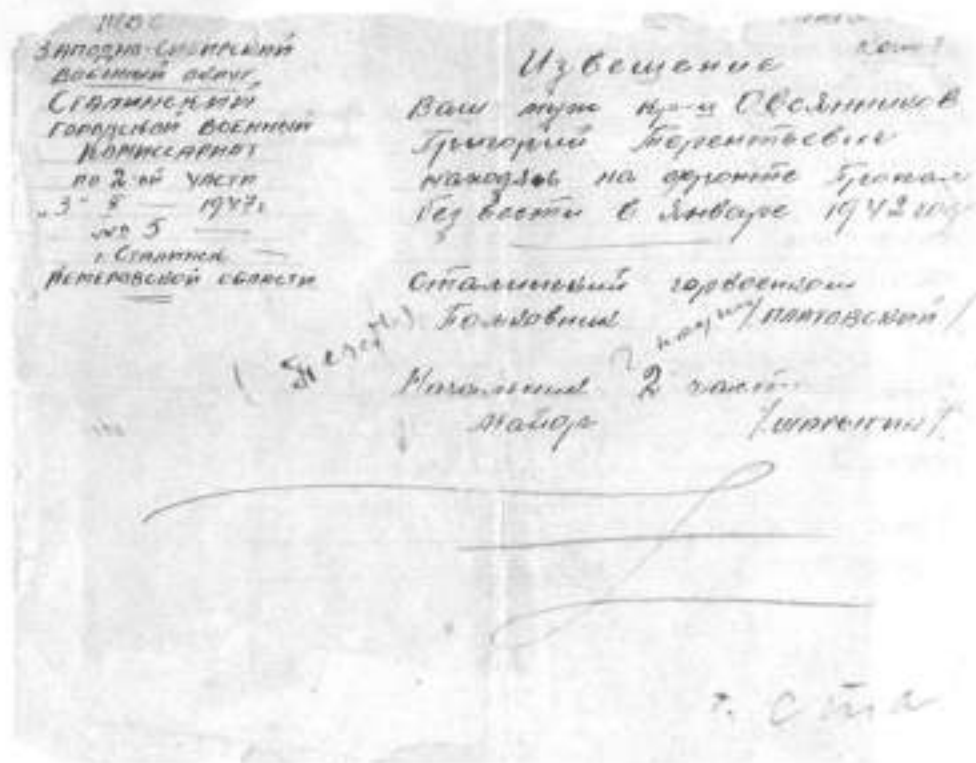 МВС
Западно-Сибирский
военный округ
Сталинский
городской военный
комиссариат
по 2-ой части
"3" 1947г.
№ 5
г. Сталинск
Кемеровской области
Копия
Извещение
Ваш муж кр-ц Овсянников
Григорий Терентьевич
находясь на фронте пропал
без вести в Январе 1942 года
Сталинский горвоенком
Полковник /Платовский/
(Печать)
Начальник 2 части
Майор /Шарыгин/